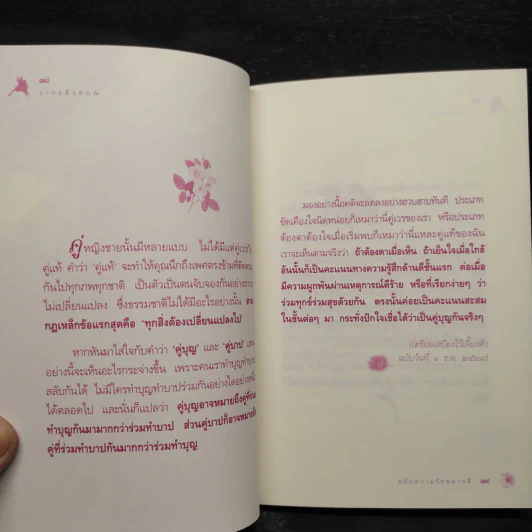 ๑๘
วาทะดังตฤณ
คู่หญิงชายนั้นมีหลายแบบ ไม่ได้มีแต่คู่เวรกับ
คู่แท้ คำว่า ‘คู่แท้’ จะทำให้คุณนึกถึงเพศตรงข้ามที่ติดตาม
กันไปทุกภพทุกชาติ เป็นตัวเป็นตนจับจองกันอย่าง
ไม่เปลี่ยนแปลง ซึ่งธรรมชาติไม่ได้มีอะไรอย่างนั้น
กฎเหล็กข้อแรกสุดคือ ‘ทุกสิ่งต้องเปลี่ยนแปลงไป’
หากหันมาใส่ใจกับคำว่า ‘คู่บุญ’ และ ‘คู่บาป’
อย่างนี้จะเห็นอะไรกระจ่างขึ้น เพราะคนเราทำบุญทำบาป
สลับกันได้ ไม่มีใครทำบุญทำบาปร่วมกันอย่างใดอย่างหนึ่ง
ได้ตลอดไป และนั่นก็แปลว่า คู่บุญอาจหมายถึงคู่ที่ร่วม
ทำบุญกันมามากกว่าร่วมทำบาป ส่วนคู่บาปก็อาจหมายถึง
คู่ที่ร่วมทำบาปกันมากกว่าร่วมทำบุญ
มองอย่างนี้อคติจะลดลงอย่างฮวบฮาบทันที ประเภท
ขัดเคืองใจนิดหน่อยก็เหมาว่านี่คู่เวรของเรา หรือประเภท
ต้องตาต้องใจเมื่อเริ่มพบก็เหมาว่านี่แหละคู่แท้ของฉัน
เราจะเห็นตามจริงว่า ถ้าต้องตาเมื่อเห็น ถ้าเย็นใจเมื่อใกล้
อันนั้นก็เป็นคะแนนทางความรู้สึกด้านดีชั้นแรก ต่อเมื่อ
มีความผูกพันผ่านเหตุการณ์ดีร้าย หรือที่เรียกง่ายๆ ว่า
ร่วมทุกข์ร่วมสุขด้วยกัน ตรงนั้นค่อยเป็นคะแนนสะสม
ในชั้นต่อๆ มา กระทั่งปักใจเชื่อได้ว่าเป็นคู่บุญกันจริงๆ
(เตรียมเสบียงไว้เลี้ยงตัว
ฉบับวันที่ ๑ ธ.ค. ๒๕๔๘)
ฉบับความรักหลากสี ๑๙